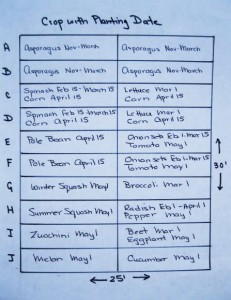 Crop with Planting Date
A Asparagus Nov-March Asparagus Nov-March
B Asparagus Nov-March Asparagus Nov-March
C Spinach Feb 15-March 15 Lettuce Mar 1
Corn April 15 Corn April 15
D Spinach Feb 15-March 15 Lettuce Mar 1
Corn April 15 Corn April 15
E Pole Bean April 15 Onion sets Feb 1-Mar 15
Tomato May 1
F Pole Bean April 15 Onion sets Feb 1-Mar 15
Tomato May 1
30'
G Winter Squash May 1 Broccoli Mar 1
H Summer Squash May 1 Radish Feb 1-April 1
Pepper May 1
I Zucchini May 1 Beet Mar 1
Eggplant May 1
J Melon May 1 Cucumber May 1
25'